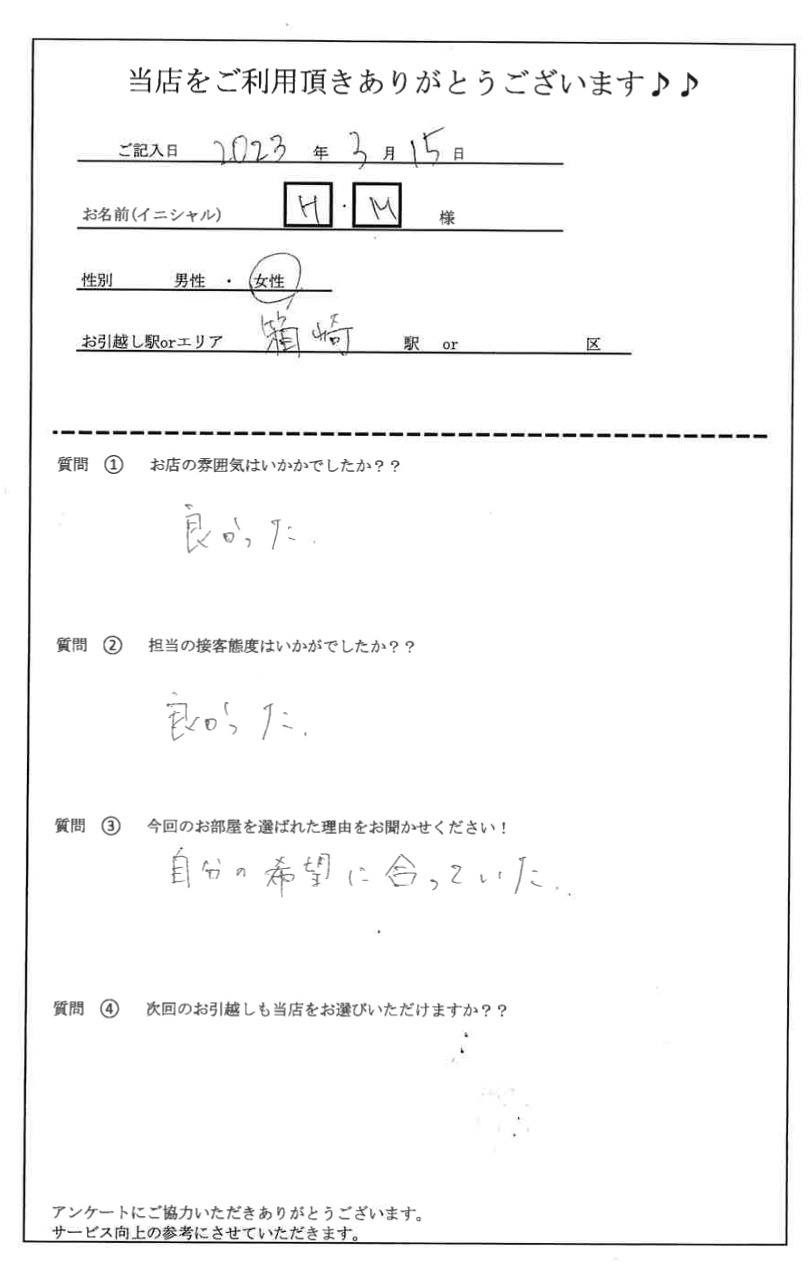 当店をご利用頂きありがとうございます♪♪
ご記入日 2023 年 3 月 15 日
お名前(イニシャル) H ・ M 様
性別 男性 ・ 女性
お引越し駅orエリア 箱崎 駅 or 区
質問 ① お店の雰囲気はいかかでしたか？？
良かった.
質問 ② 担当の接客態度はいかがでしたか？？
良かった.
質問 ③ 今回のお部屋を選ばれた理由をお聞かせください！
自分の希望に合っていた.
質問 ④ 次回のお引越しも当店をお選びいただけますか？？
アンケートにご協力いただきありがとうございます。
サービス向上の参考にさせていただきます。